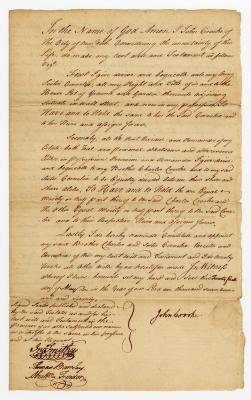 In the Name of God Amen I John Crooke of
the City of New York Considering the uncertainty of this
Life, do make my last will and Testament in
First I give devise and bequeath unto my loving
Sister Cornelia, all my Right and Title of in and to the
House Lot of Ground with Garden thereunto adjoining
situate in Wall Street, and now in my possession To
Have and to Hold the same to her the Said Cornelia and
to her Heirs and Assigns forever
Secondly, all the Rest Residue and Remainder of my
Estate both real and personal whatsoever and wheresoever
either in possession Reversion or Remainder I give devise
and bequeath to my Brother Charles Crooke and to my said
Sister Cornelia to be Equally divided between them Share and
Share alike, To Have and to Hold the one Equal
moiety or half part thereof to the said Charles Crooke and
the other Equal Moiety or half part thereof to the said
and to their Respective Heirs and Assigns forever
Lastly I do hereby nominate Constitute and appoint
my said Brother Charles and Sister Cornelia Executor and
Executrix of this my last will and Testament and I do hereby
Revoke all other wills by me heretofore made In Witness
whereof I have hereunto set my hand and Seal the
day of May in the Year of our Lord one thousand seven
and
Signed Sealed Published and Declared
by the said Testator as and for his
last will and Testament in the
presence of us who subscribed our names
as witnesses to the same in his presence
and at his Request
John Crooke
Thomas Barclay